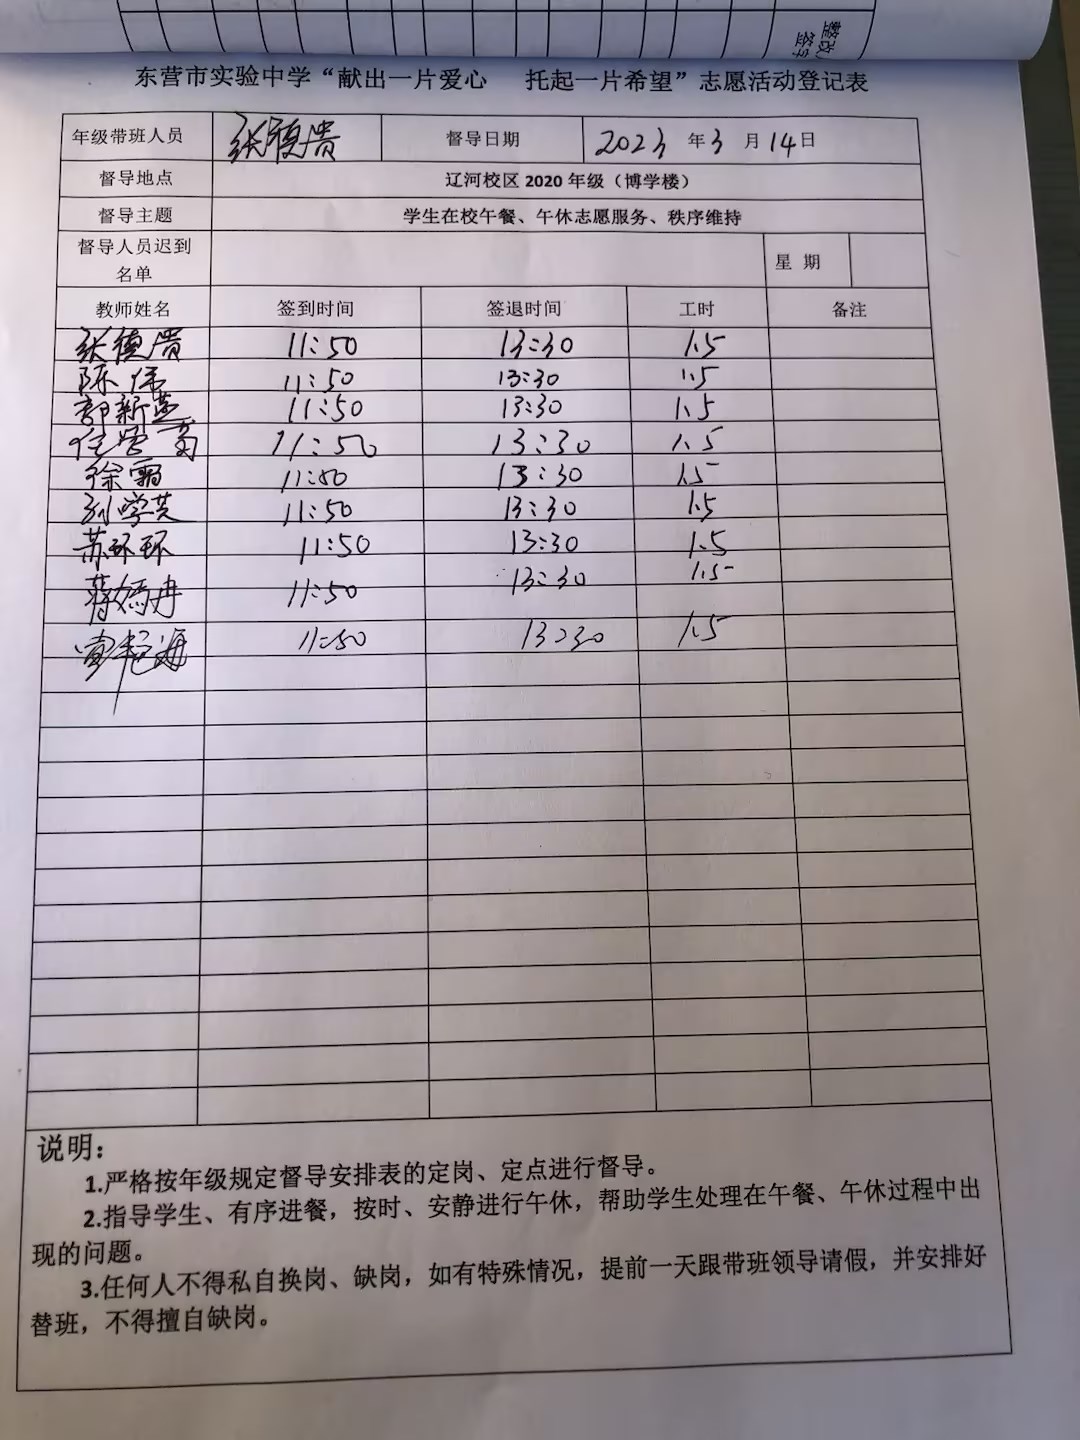 整改
签字
东营市实验中学“献出一片爱心 托起一片希望”志愿活动登记表
年级带班人员 张德贵 督导日期 2023 年 3 月 14 日
督导地点 辽河校区 2020 年级（博学楼）
督导主题 学生在校午餐、午休志愿服务、秩序维持
督导人员迟到名单 星 期
教师姓名 签到时间 签退时间 工时 备注
张德贵 11:50 13:30 1.5
陈伟 11:50 13:30 1.5
郭新燕 11:50 13:30 1.5
11:50 13:30 1.5
徐霞 11:50 13:30 1.5
刘学芝 11:50 13:30 1.5
苏环环 11:50 13:30 1.5
蒋嫣冉 11:50 13:30 1.5
11:50 13:30 1.5
说明：
1.严格按年级规定督导安排表的定岗、定点进行督导。
2.指导学生、有序进餐，按时、安静进行午休，帮助学生处理在午餐、午休过程中出
现的问题。
3.任何人不得私自换岗、缺岗，如有特殊情况，提前一天跟带班领导请假，并安排好
替班，不得擅自缺岗。